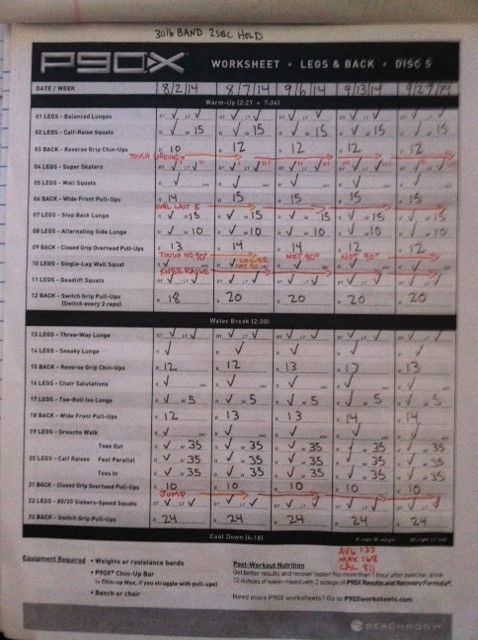 30lb BAND 2SEC HOLD
P90X WORKSHEET • LEGS & BACK • DISC 5
DATE / WEEK 8/2/14 8/7/14 9/6/14 9/13/14 9/27/14
Warm-Up (2:27 + 7:36)
01 LEGS - Balanced Lunges RT ✓ LT ✓ ✓ ✓ ✓ ✓ ✓ ✓ ✓ ✓
02 LEGS - Calf-Raise Squats R ✓ W 15 ✓ W 15 ✓ W 15 ✓ W 15 ✓ W 15
03 BACK - Reverse Grip Chin-Ups R 10 12 12 12 12
TOUCH GROUND
04 LEGS - Super Skaters RT ✓ LT ✓ ✓ ✓ ✓ ✓ ✓ ✓ ✓ ✓
05 LEGS - Wall Squats ✓ ✓ ✓ ✓ ✓
06 BACK - Wide Front Pull-Ups R 14 15 15 15 15
LAST 5
07 LEGS - Step Back Lunge R ✓ W 15 ✓ W 15 ✓ W 15 ✓ W 15 ✓ W 15
08 LEGS - Alternating Side Lunge R ✓ W 10 ✓ W 10 ✓ W 10 ✓ W 10 ✓ W 10
09 BACK - Closed Grip Overhand Pull-Ups R 13 14 14 12 12
TOUGH NO 90° NOT 90° NOT 90°
10 LEGS - Single-Leg Wall Squat ✓ ✓ ✓ ✓ ✓
KNEE RAISE
11 LEGS - Deadlift Squats RT ✓ LT ✓ ✓ ✓ ✓ ✓ ✓ ✓ ✓ ✓
12 BACK - Switch Grip Pull-Ups R 18 20 20 20 20
(Switch every 2 reps)
Water Break (2:00)
13 LEGS - Three-Way Lunge RT ✓ LT ✓ ✓ ✓ ✓ ✓ ✓ ✓ ✓ ✓
14 LEGS - Sneaky Lunge ✓ ✓ ✓ ✓ ✓
15 BACK - Reverse Grip Chin-Ups R 12 12 13 13 13
16 LEGS - Chair Salutations ✓ ✓ ✓ ✓ ✓
17 LEGS - Toe-Roll Iso Lunge R ✓ W 5 ✓ W 5 ✓ W 5 ✓ W 5 ✓ W 5
18 BACK - Wide Front Pull-Ups R 12 13 13 14 14
19 LEGS - Groucho Walk ✓ ✓ ✓ ✓ ✓
Toes Out R ✓ W 35 ✓ W 35 ✓ W 35 ✓ W 35 ✓ 35
20 LEGS - Calf Raises Feet Parallel R ✓ W 35 ✓ W 35 ✓ W 35 ✓ W 35 ✓ 35
Toes In R ✓ W 35 ✓ W 35 ✓ W 35 ✓ W 35 ✓ 35
21 BACK - Closed Grip Overhand Pull-Ups R 10 10 10 10 10
JUMP
22 LEGS - 80/20 Siebers-Speed Squats RT ✓ LT ✓ ✓ ✓ ✓ ✓ ✓ ✓ ✓ ✓
23 BACK - Switch Grip Pull-Ups R 24 24 24 24 24
Cool Down (4:18)
AVG 133
MAX 168
CAL 811
Equipment Required • Weights or resistance bands
• P90X® Chin-Up Bar
(+ Chin-Up Max, if you struggle with pull-ups)
• Bench or chair
Post-Workout Nutrition
Get better results and recover faster! No more than 1 hour after exercise, drink
12 ounces of water mixed with 2 scoops of P90X Results and Recovery Formula®.
Need more P90X worksheets? Go to P90Xworksheets.com
BEACHBODY